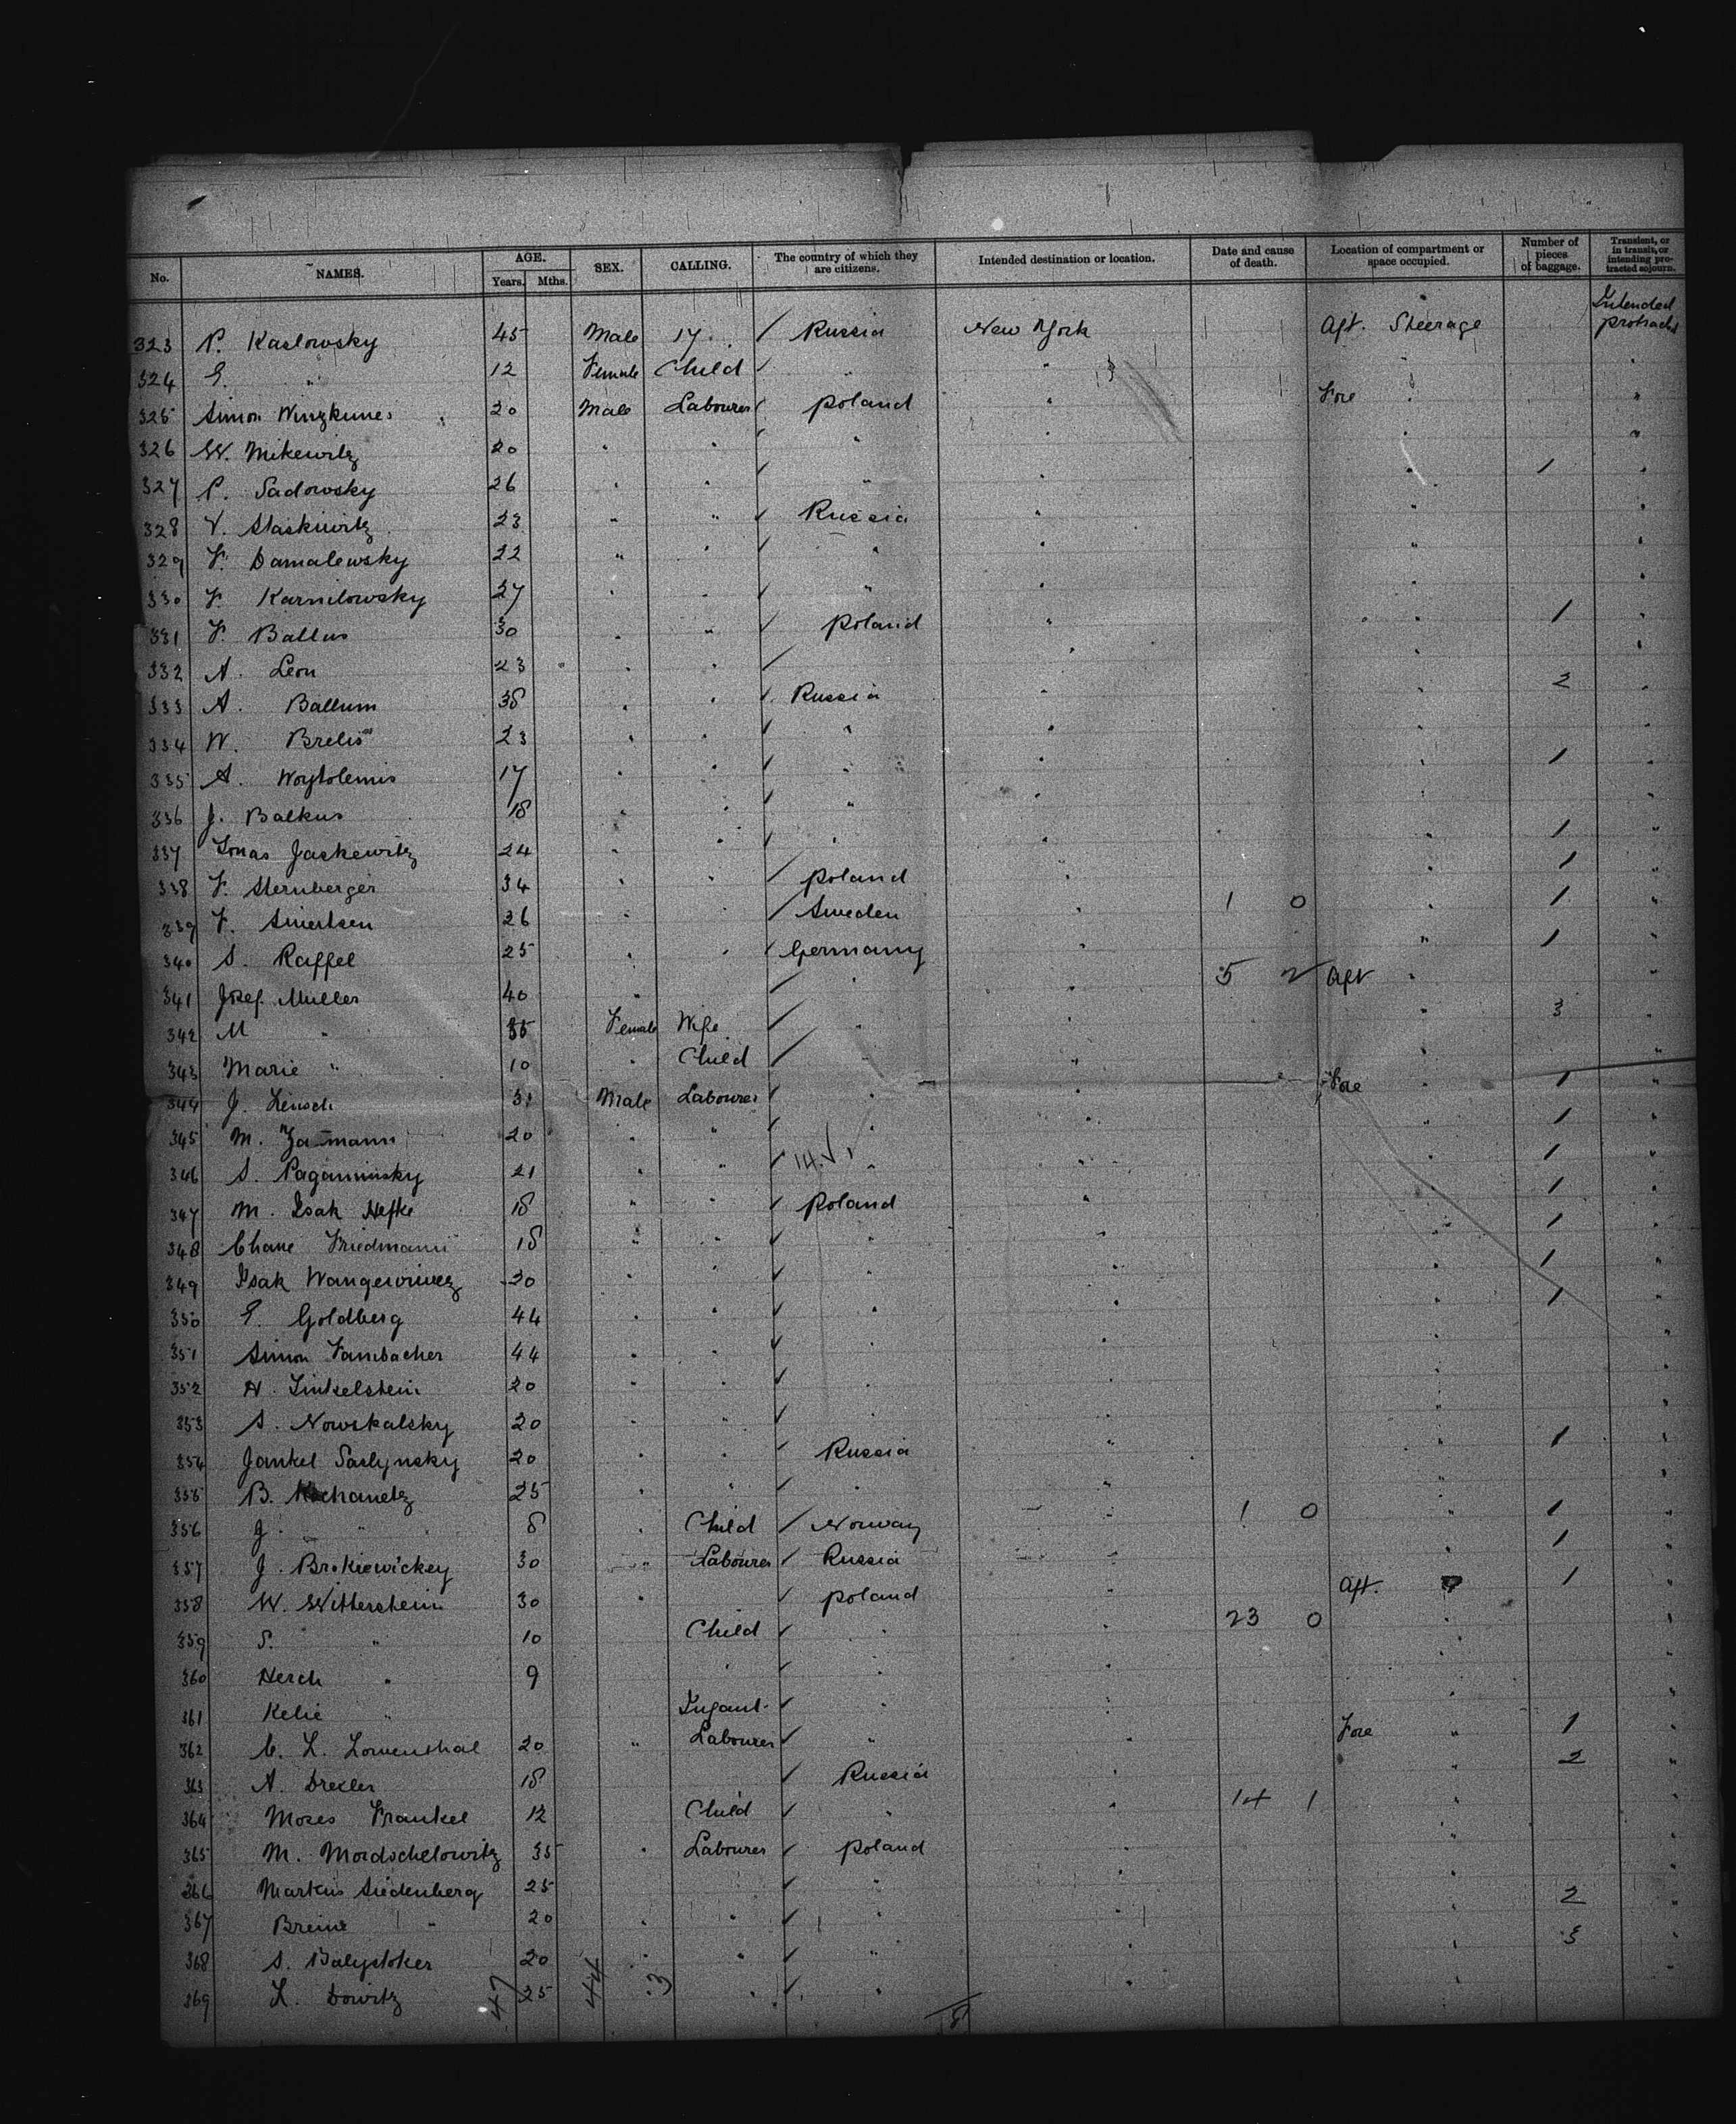 No. NAMES. AGE. Years. Mths. SEX. CALLING. The country of which they are citizens. Intended destination or location. Date and cause of death. Location of compartment or space occupied. Number of pieces of baggage. Transient, or in transit, or intending protracted sojourn.
Intended
323 P. Kaslowsky 45 Male 17. / Russia New York Aft. Steerage protracted
324 E. " 12 Female Child / " " " "
325 Simon 20 Male Labourer / Poland " Fore " "
326 W. Mikewitz 20 " " / " " " "
327 P. Sadowsky 26 " " / " " " 1 "
328 V. Staskiwitz 23 " " / Russia " " "
329 F. Damalewsky 22 " " / " " " "
330 F. Karnilowsky 27 " " / " " " "
331 F. Ballus 30 " " / Poland " " 1 "
332 A. Leon 23 " " / " " "
333 A. Ballum 38 " " / Russia " " 2 "
334 W. Brelis 23 " " / " " " "
335 A. Woytolemis 17 " " / " " " 1 "
336 J. Balkus 18 " " / " " " "
337 Jonas Jaskewitz 24 " " / " " " 1 "
338 F. Sternberger 34 " " / Poland " " 1 "
339 F. Sivertsen 26 " / Sweden " 1 0 " 1 "
340 S. Raffel 25 " " / Germany " " 1 "
341 Josef Muller 40 " / " " 5 2 Aft " "
342 M " 35 Female Wife / " " " 3 "
343 Marie " 10 " Child / " " " "
344 J. Liensch 31 Male Labourer / " Fore " 1 "
345 M. 20 " " / " " " 1 "
346 S. Pagaminsky 21 " " / 14. V. " " " 1 "
347 M. Isak Hefke 18 " " / Poland " " 1 "
348 Chane Friedmann 18 " " / " " " 1 "
349 Isak 20 " " / " " " 1 "
350 E. Goldberg 44 " " / " " " 1 "
351 Simon Fambacher 44 " " / " " "
352 H. Linkelstein 20 " " / " " "
353 S. Nowskalsky 20 " " / " " "
354 Jankel Saslynsky 20 " " / Russia " " 1 "
355 B. Kochanetz 25 " " / " " " "
356 J. " 8 " Child / Norway " 1 0 " 1 "
357 J. Brokiewickey 30 " Labourer / Russia " " 1 "
358 W. Wittershein 30 " / Poland " Aft. " 1 "
359 S. " 10 Child / " " 23 0 " "
360 Hersch " 9 " / " " "
361 Kelie " Infant. / " " " "
362 C. L. Lowenthal 20 " Labourer / " " Fore " 1 "
363 A. Drexler 18 / Russia " " 2 "
364 Moses Frankel 12 Child / " " 14 1 " "
365 M. Mordschelowitz 35 " Labourer / Poland " " "
366 Markus Siedenberg 25 / " " " 2 "
367 Breine " 20 " " / " " " 3 "
368 S. Balystoker 20 " " / " " "
369 L. Dowitz 25 " " / " "
47 44 3